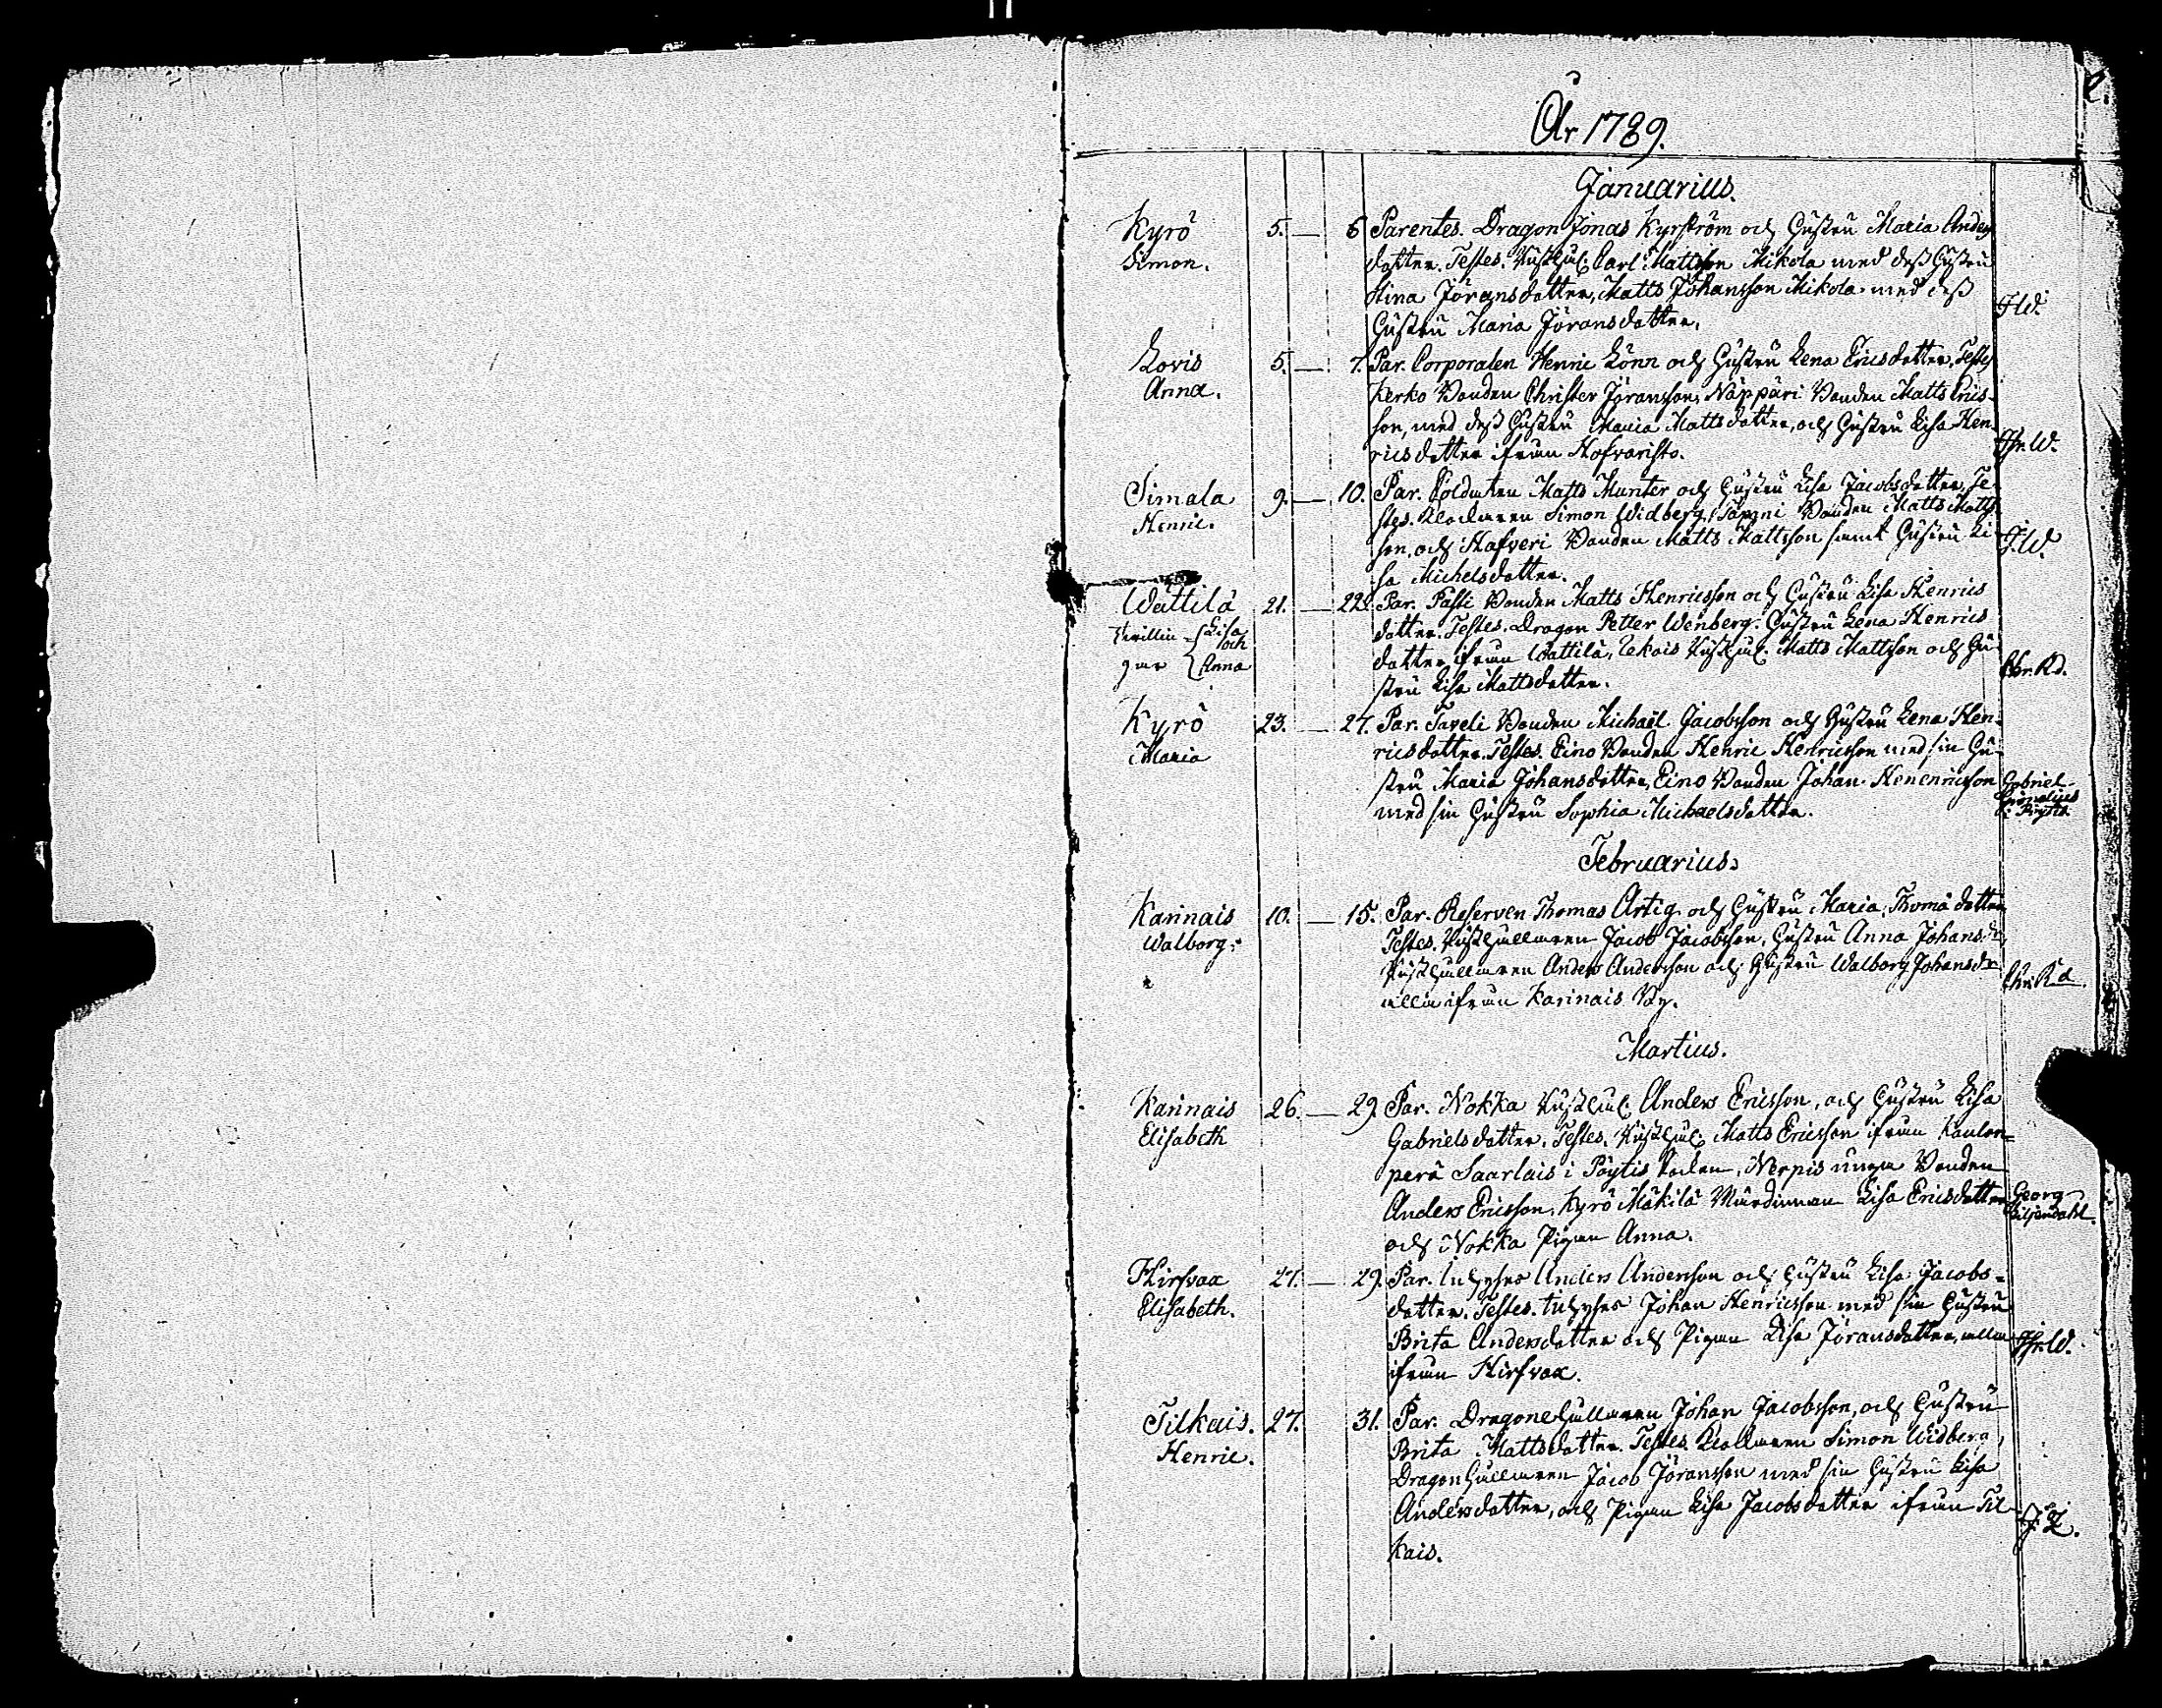 2.
År 1789.
Januarius.
Kyrö 5. — 6 Parentes. Dragon Jonas Kyrström och Hustru Maria Anders
Simon. dotter. Testes. Rusthål. Carl Mattsson Mikola med dess Hustru
Stina Jöransdotter, Matts Johansson Mikola med dess
J W.
Hustru Maria Jöransdotter.
Lovis 5. — 7. Par. Corporalen Henric Lönn och Hustru Lena Ericsdotter, Testes
Anna. Kerko Bonden Christer Jöransson, Näppäri Bonden Matts Erics-
son, med dess Hustru Maria Mattsdotter, och Hustru Lisa Hen-
ricsdotter ifrån Hofvaristo.
Simala 9. — 10. Par. Soldaten Matts Munter och Hustru Lisa Jacobsdotter, Te-
Henric. stes. Klockaren Simon Widberg, Bonden Matts Matts
son, och Hafveri Bonden Matts Mattsson samt Hustru Li-
J. W.
sa Michelsdotter.
Wättilä 21. — 22. Par. Passi Bonden Matts Henricsson och Hustru Lisa Henrics
Tvillin- Lisa dotter. Testes. Dragon Petter Wenberg. Hustru Lena Henrics
och
gar Anna dotter ifrån Wättilä, Rusthål. Matts Mattsson och Hu-
Chr. Rd.
stru Lisa Mattsdotter.
Kyrö 23. — 27. Par. Taveli Bonden Michaël Jacobsson och Hustru Lena Hen-
Maria ricsdotter. Testes. Eino Bonden Henric Henricsson med sin Hu-
stru Maria Johansdotter, Eino Bonden Johan Henenricsson
Gabriel
i Pöytis
med sin Hustru Sophia Michaelsdotter.
Februarius.
Karinais 10. — 15. Par. Reserven Thomas Artig och Hustru Maria Thomædotter
Walborg. Testes. Rusthållaren Jacob Jacobsson, Hustru Anna Johansdr,
Rusthållaren Anders Andersson och Hustru Walborg Johansdr
Chr. Rd.
alla ifrån Karinais By.
Martius.
Karinais 26. — 29. Par. Nokka Rusthål. Anders Ericsson, och Hustru Lisa
Elisabeth Gabrielsdotter. Testes. Rusthål. Matts Ericsson ifrån Kaulan=
perä Saarlais i Pöytis Socken, unga Bonden
Anders Ericsson, Kyrö Mäkilä Lisa Ericsdotter
Georg
Liljendahl.
och Nokka Pigan Anna.
Hirfvax 27. — 29. Par. Inhyses Anders Andersson och Hustru Lisa Jacobs=
Elisabeth. dotter. Testes. Inhyses Johan Henricsson med sin Hustru
Brita Andersdotter och Pigan Lisa Jöransdotter, alla
ifrån Hirfvax.
Tilkais. 27. 31. Par. Dragonehållaren Johan Jacobsson, och Hustru
Henric. Brita Mattsdotter. Testes. Klockaren Simon Widberg,
Dragonhållaren Jacob Jöransson med sin Hustru Lisa
Andersdotter, och Pigan Lisa Jacobsdotter ifrån Til-
J. L.
kais.